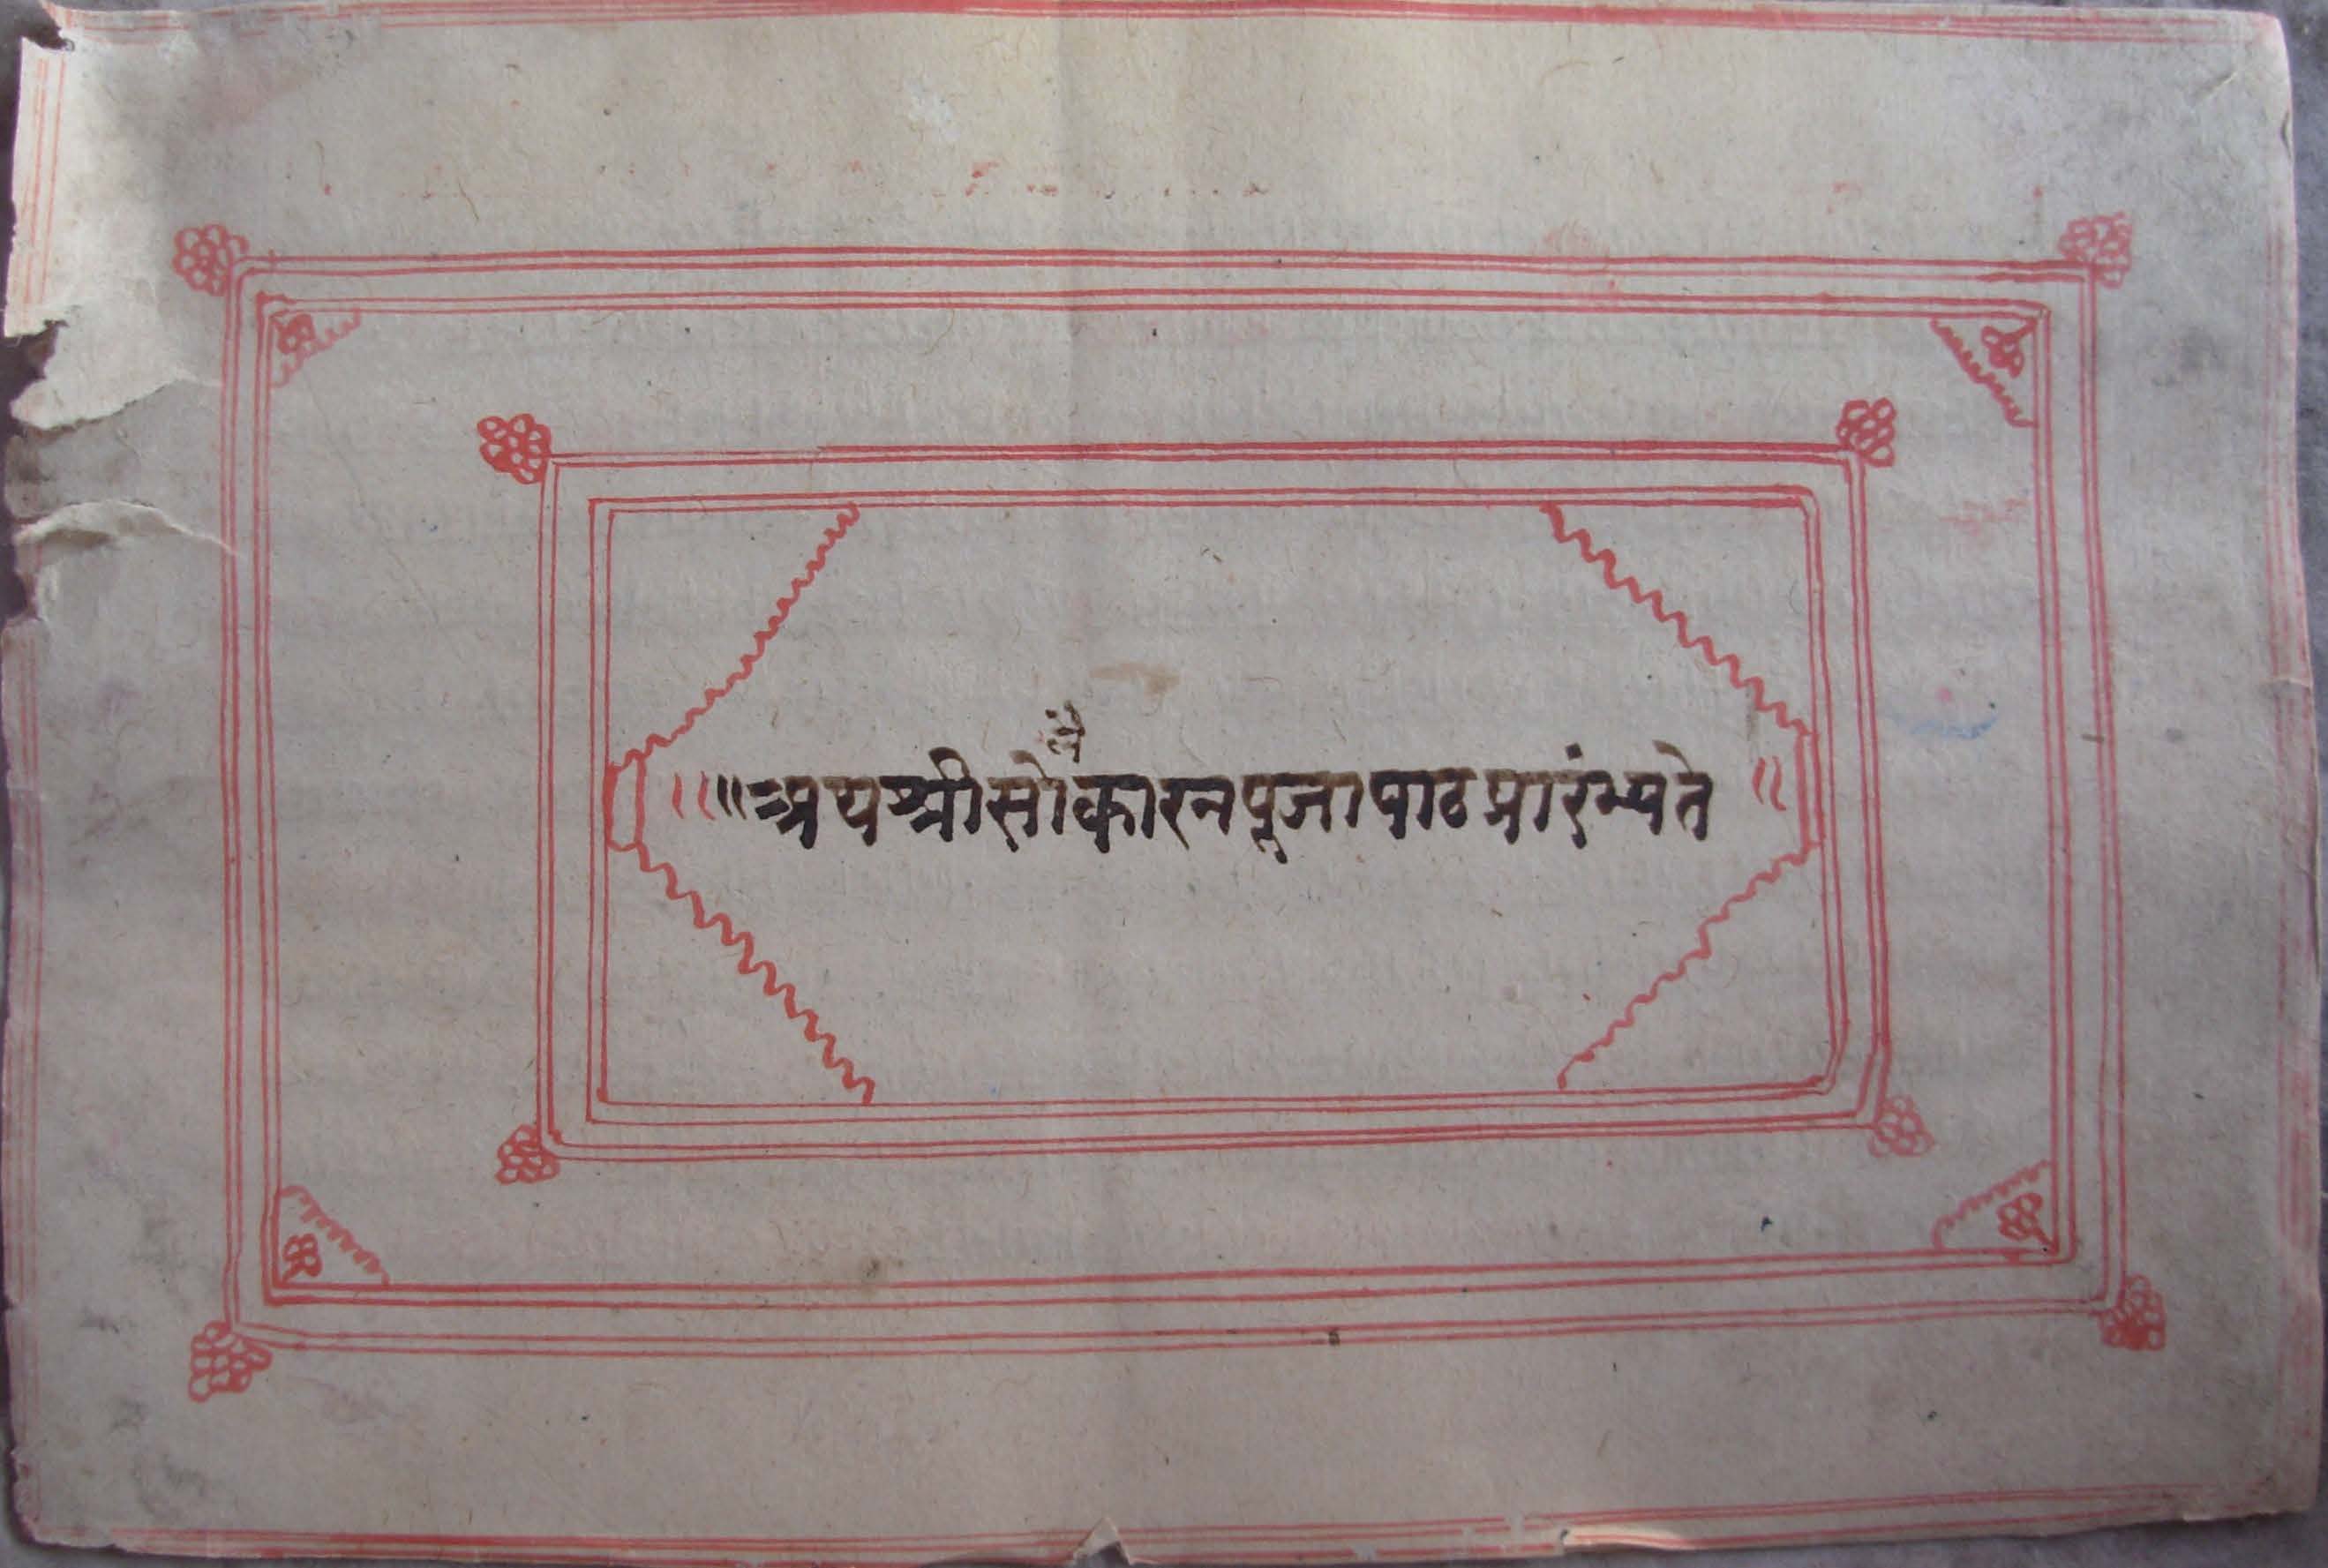 ॥ ॥ अथ श्री सोलैकारन पूजा पाठ प्रारंभ्यते ॥